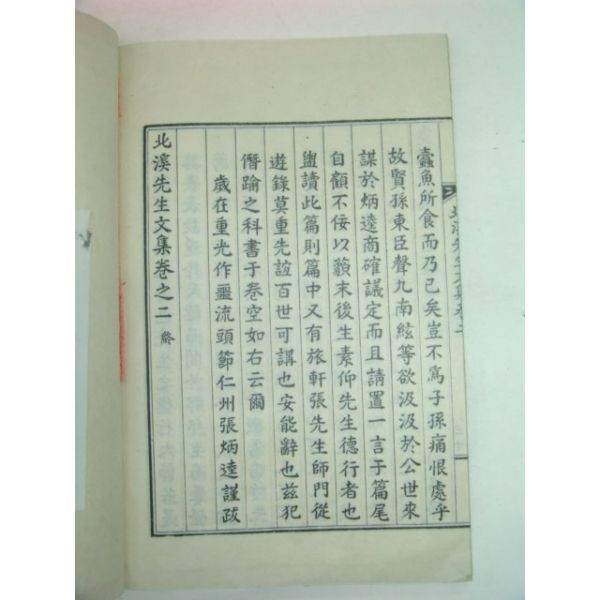 蠹魚所食而乃已矣豈不爲子孫痛恨處乎
故賢孫東臣聲九南絃等欲汲汲於公世來
謀於炳逵商確議定而且請置一言于篇尾
自顧不佞以藐末後生素仰先生德行者也
盥讀此篇則篇中又有旅軒張先生師門從
遊錄莫重先誼百世可講也安能辭也玆犯
僭踰之科書于卷空如右云爾
歲在重光作噩流頭節仁州張炳逵謹跋
北溪先生文集卷之二 終